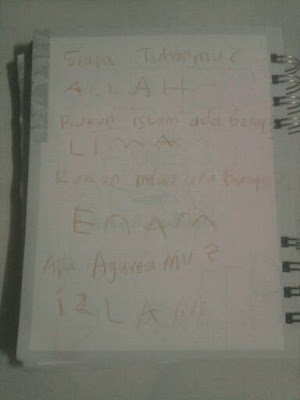 Siapa Tuhanmu?
ALLAH
Rukun islam ada berapa
LIMA
Rukun iman ada Berapa
ENAM
Apa Agamamu?
iZLAM